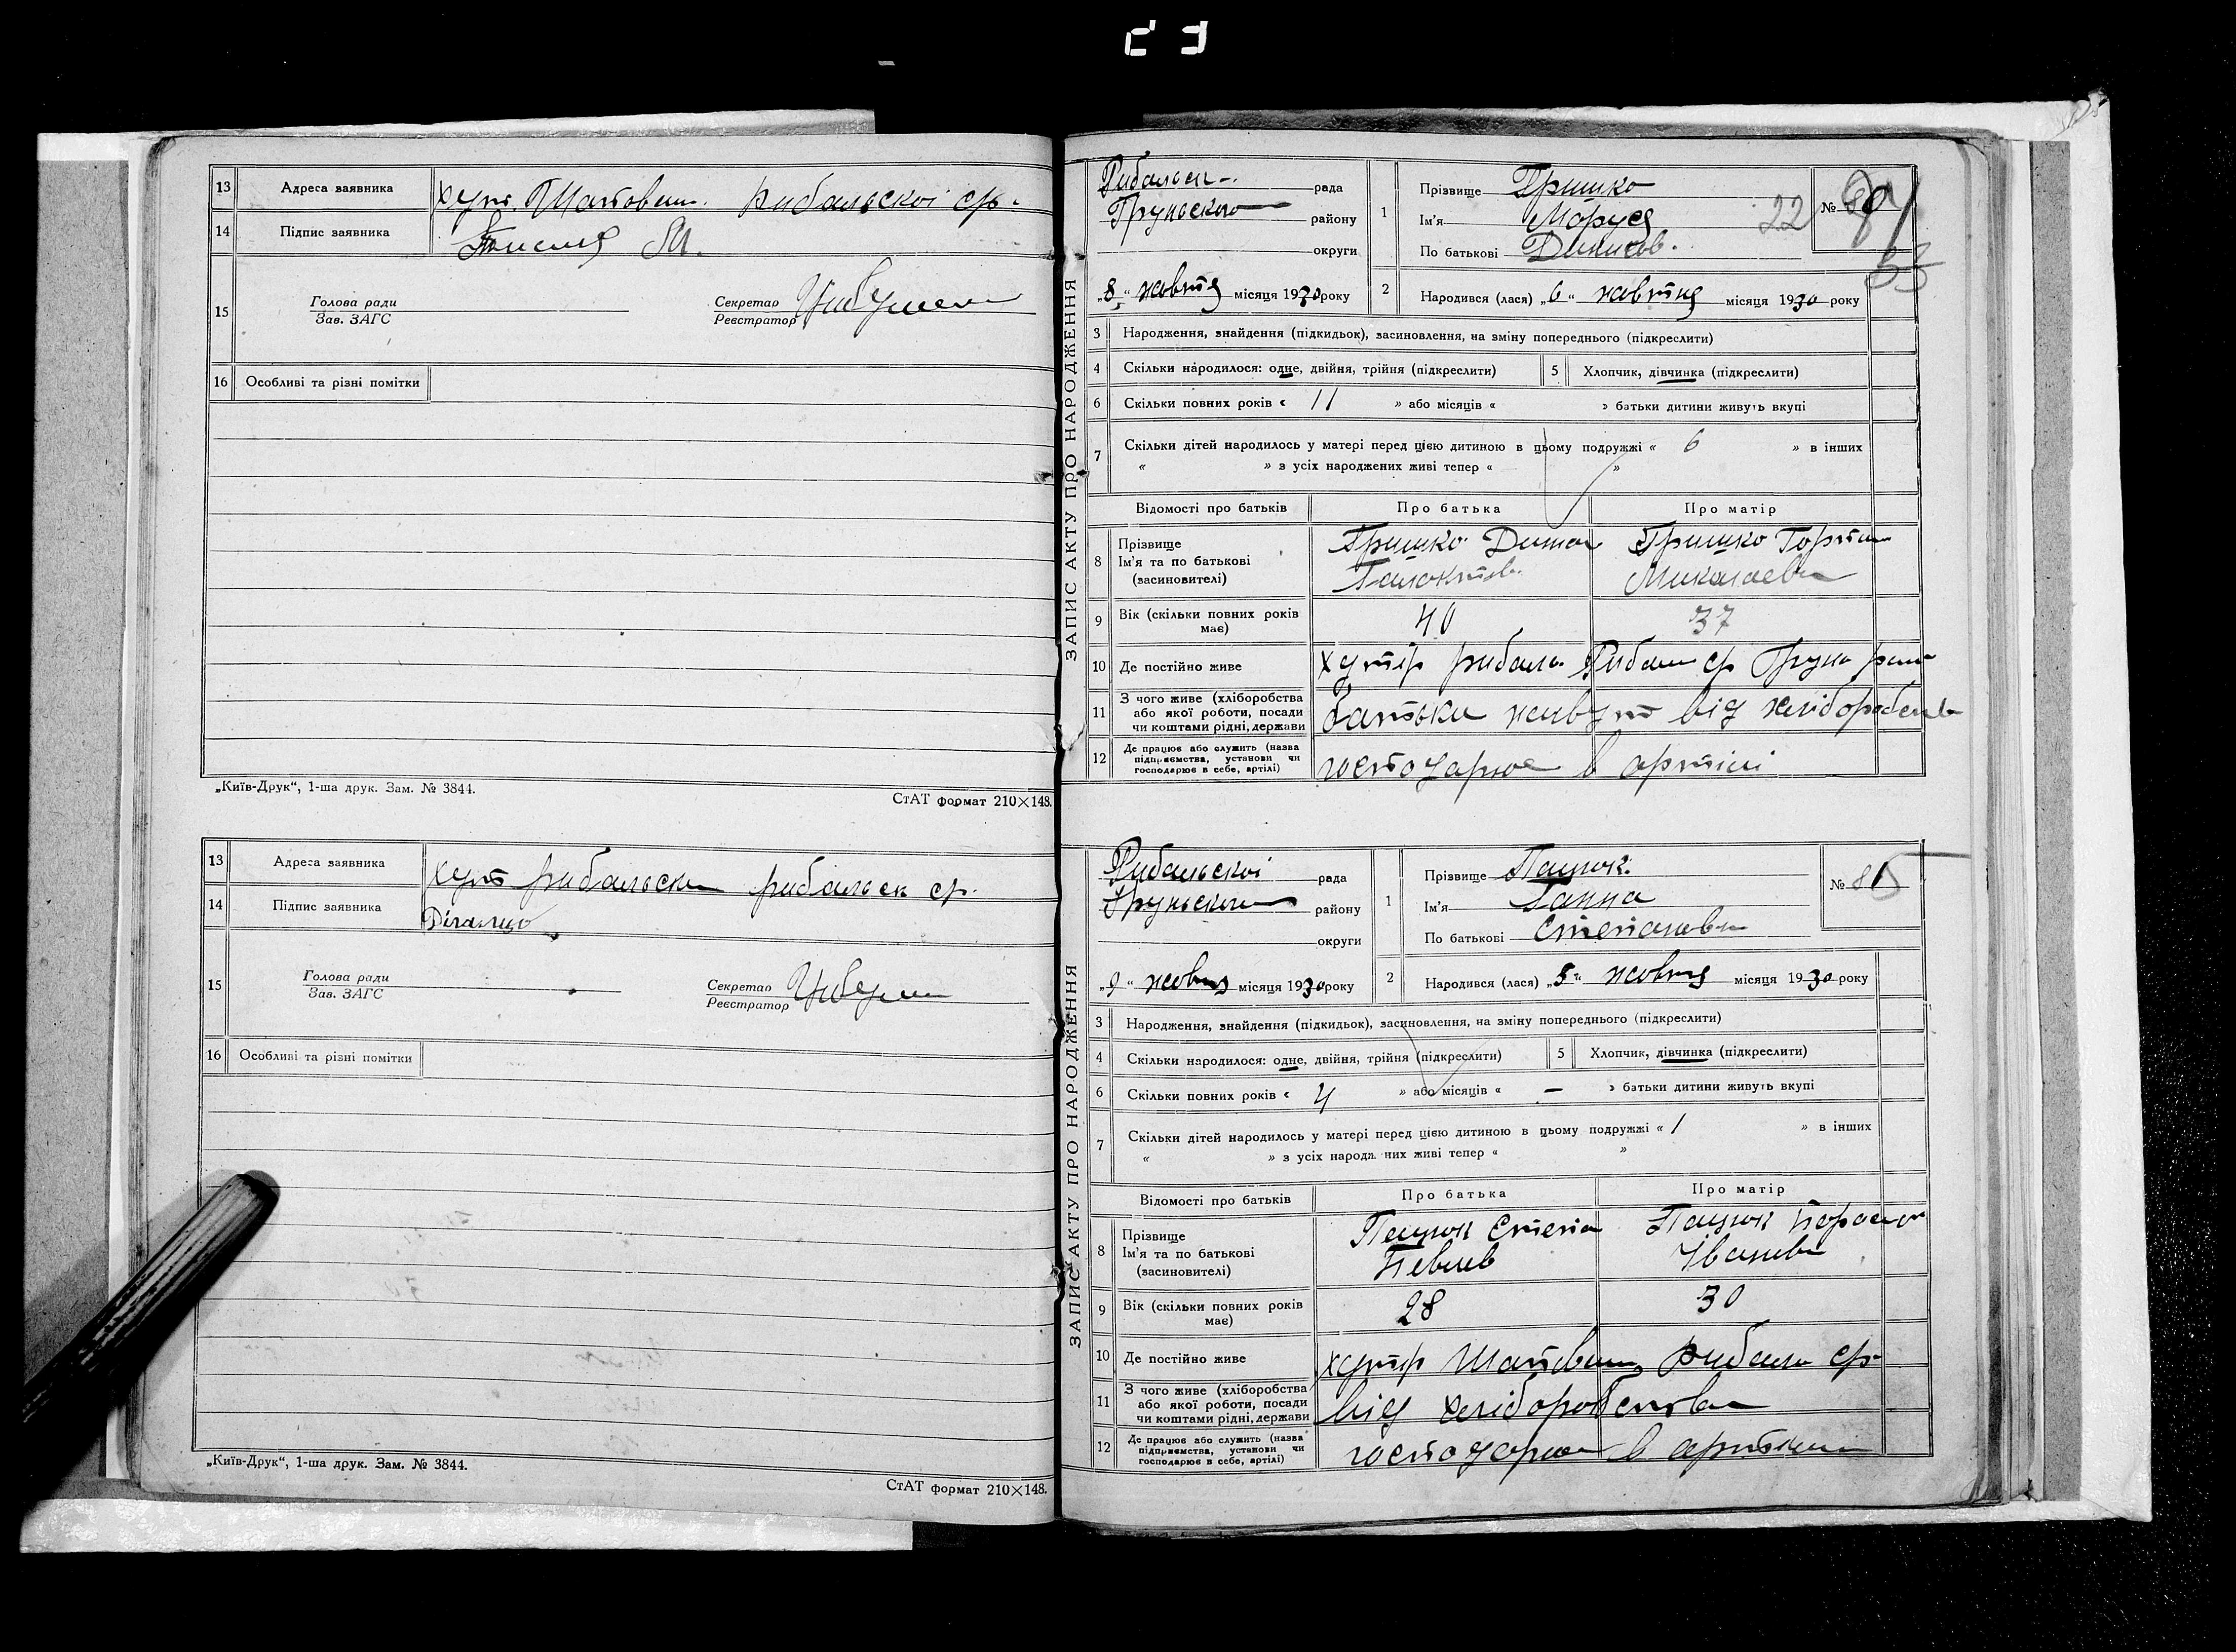 13 Адреса заявника хут. Шатовен. рибальскоі ср.
14 Підпис заявника
15 Голова ради Зав. ЗАГС Секретар Реєстратор
16 Особливі та різні помітки
„Київ-Друк“, 1-ша друк. Зам. № 3844. СтАТ формат 210×148.
13 Адреса заявника хут рибальски рибальск ср.
14 Підпис заявника
15 Голова ради Зав. ЗАГС Секретар Реєстратор
16 Особливі та різні помітки
„Київ-Друк“, 1-ша друк. Зам. № 3844.
СтАТ формат 210×148.
ЗАПИС АКТУ ПРО НАРОДЖЕННЯ
Рибальск рада
Груньского району
округи
„8“ жовтня місяця 1930 року
1 Прізвище Гришко
Ім'я Маруся 22 №
По батькові Динисов.
2 Народився (лася) „6“ жовтня місяця 1930 року
3 Народження, знайдення (підкидьок), засиновлення, на зміну попереднього (підкреслити)
4 Скільки народилося: одне, двійня, трійня (підкреслити) 5 Хлопчик, дівчинка (підкреслити)
6 Скільки повних років « 11 » або місяців « » батьки дитини живуть вкупі
7 Скільки дітей народилось у матері перед цією дитиною в цьому подружжі « 6 » в інших
« » з усіх народжених живі тепер « »
Відомості про батьків Про батька Про матір
8 Прізвище Ім'я та по батькові (засновителі) Гришко Гришко
Миколаевн
9 Вік (скільки повних років має) 40 37
10 Де постійно живе хутір рибальс. Рибальс ср Грунь рай
11 З чого живе (хліборобства або якої роботи, посади чи коштами рідні, держави батьки живут від хліборобств
12 Де працює або служить (назва підприємства, установи чи господарює в себе, артілі) господарює в артілі
ЗАПИС АКТУ ПРО НАРОДЖЕННЯ
Рибальскоі рада
Груньского району
округи
„9“ жовтня місяця 1930 року
1 Прізвище Пацюк
Ім'я Ганна № 81
По батькові Степановн
2 Народився (лася) „5“ жовтня місяця 1930 року
3 Народження, знайдення (підкидьок), засиновлення, на зміну попереднього (підкреслити)
4 Скільки народилося: одне, двійня, трійня (підкреслити) 5 Хлопчик, дівчинка (підкреслити)
6 Скільки повних років « 4 » або місяців « — » батьки дитини живуть вкупі
7 Скільки дітей народилось у матері перед цією дитиною в цьому подружжі « 1 » в інших
« » з усіх народж них живі тепер « »
Відомості про батьків Про батька Про матір
8 Прізвище Ім'я та по батькові (засиновителі) Пацюк Степа Пацюк
Іванивн
9 Вік (скільки повних років має) 28 30
10 Де постійно живе хутір Шатовен Рибаль ср
11 З чого живе (хліборобства або якої роботи, посади чи коштами рідні, держави від хліборобства
12 Де працює або служить (назва підприємства, установи чи господарює в себе, артілі) господарює в